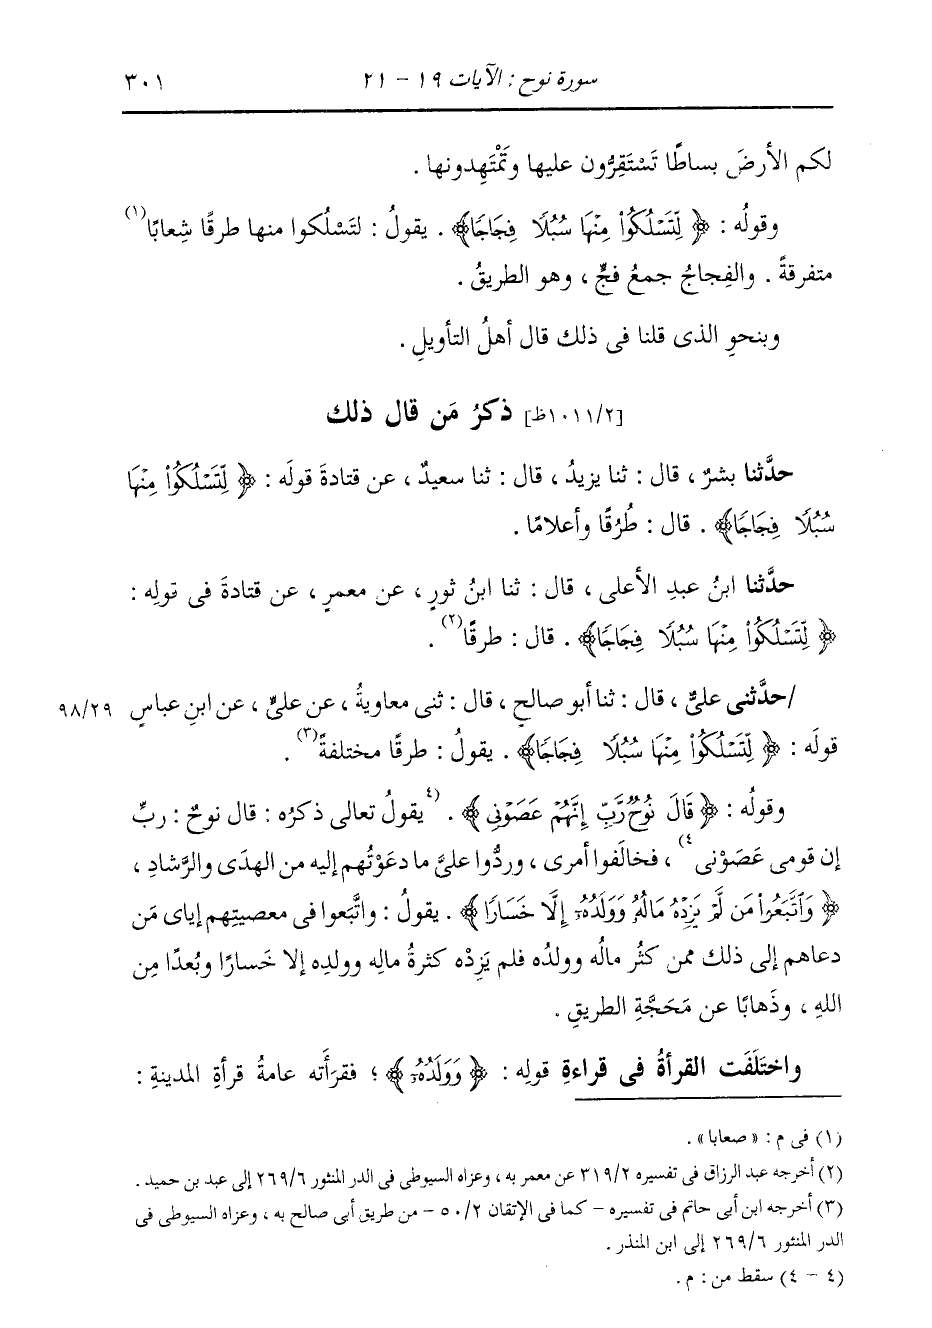 سورة نوح : الآيات ١٩ - ٢١ ٣٠١
لكم الأرضَ بساطًا تَسْتَقِرُّون عليها وتَمْتَهِدونها .
وقولُه : ﴿ لِّتَسْلُكُوا۟ مِنْهَا سُبُلًا فِجَاجًا﴾ . يقولُ : لتَسْلُكوا منها طرقًا شِعابًا(١)
متفرقةً . والفِجاجُ جمعُ فجٍّ ، وهو الطريقُ .
وبنحوِ الذى قلنا فى ذلك قال أهلُ التأويلِ .
[١٠١١/٢ظ] ذكرُ مَن قال ذلك
حدَّثنا بشرٌ ، قال : ثنا يزيدُ ، قال : ثنا سعيدٌ ، عن قتادةَ قولَه : ﴿ لِّتَسْلُكُوا۟ مِنْهَا
سُبُلًا فِجَاجًا﴾ . قال : طُرُقًا وأعلامًا .
حدَّثنا ابنُ عبدِ الأعلى ، قال : ثنا ابنُ ثورٍ ، عن معمرٍ ، عن قتادةَ فى قولِه :
﴿ لِّتَسْلُكُوا۟ مِنْهَا سُبُلًا فِجَاجًا﴾ . قال : طرقًا(٢) .
/حدَّثنى علىٌّ ، قال : ثنا أبو صالحٍ ، قال : ثنى معاويةُ ، عن علىٍّ ، عن ابنِ عباسٍ ٩٨/٢٩
قولَه : ﴿ لِّتَسْلُكُوا۟ مِنْهَا سُبُلًا فِجَاجًا﴾ . يقولُ : طرقًا مختلفةً(٣) .
وقولُه : ﴿ قَالَ نُوحٌ رَّبِّ إِنَّهُمْ عَصَوْنِى ﴾ . (٤يقولُ تعالى ذكرُه : قال نوحٌ : ربِّ
إن قومى عَصَوْنى٤) ، فخالَفوا أمرى ، وردُّوا علىَّ ما دعَوْتُهم إليه من الهدَى والرَّشادِ ،
﴿ وَٱتَّبَعُوا۟ مَن لَّمْ يَزِدْهُ مَالُهُۥ وَوَلَدُهُۥٓ إِلَّا خَسَارًا ﴾ . يقولُ : واتَّبَعوا فى معصيتِهم إياى مَن
دعاهم إلى ذلك ممن كثُر مالُه وولدُه فلم يَزِدْه كثرةُ مالِه وولدِه إلا خَسارًا وبُعدًا مِن
اللهِ ، وذَهابًا عن مَحَجَّةِ الطريقِ .
واختَلَفَت القرأةُ فى قراءةِ قولِه : ﴿ وَوَلَدُهُۥٓ ﴾ ؛ فقرَأَته عامةُ قرأةِ المدينةِ :
(١) فى م : « صعابا» .
(٢) أخرجه عبد الرزاق فى تفسيره ٣١٩/٢ عن معمر به ، وعزاه السيوطى فى الدر المنثور ٢٦٩/٦ إلى عبد بن حميد .
(٣) أخرجه ابن أبى حاتم فى تفسيره - كما فى الإتقان ٥٠/٢ - من طريق أبى صالح به ، وعزاه السيوطى فى
الدر المنثور ٢٦٩/٦ إلى ابن المنذر .
(٤ - ٤) سقط من : م .